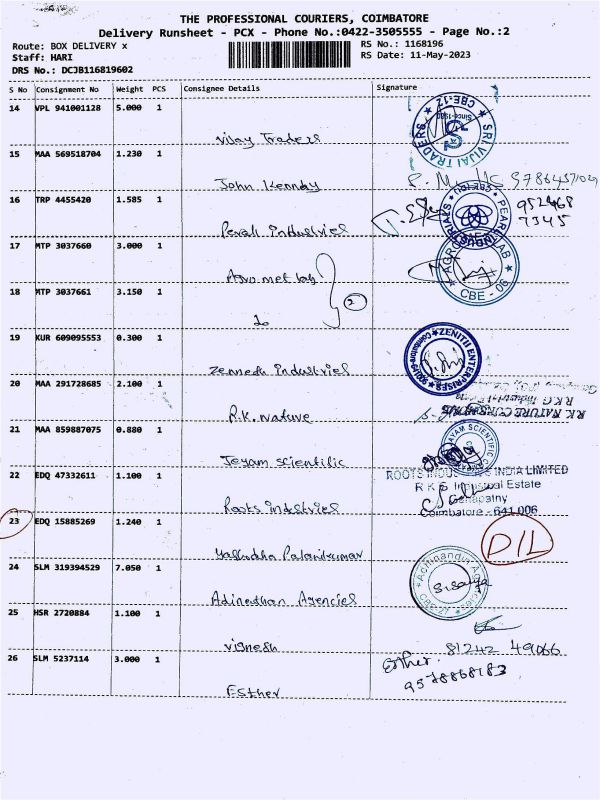 THE PROFESSIONAL COURIERS, COIMBATORE
Delivery Runsheet - PCX - Phone No.:0422-3505555 - Page No.:2
Route: BOX DELIVERY x
RS No.: 1168196
Staff: HARI
RS Date: 11-May-2023
DRS No.: DCJB116819602
S No Consignment No Weight PCS Consignee Details Signature
14 VPL 941001128 5.000 1
Vijay Traders
SRI VIJAI TRADERS CBE-12 Since-1980
15 MAA 569518704 1.230 1
John Kennady
16 TRP 4455420 1.585 1
952468
7345
Perali industries
17 MTP 3037660 3.000 1
Agro.met lab
2
AGROMET LAB CBE - 90
18 MTP 3037661 3.150 1
19 KUR 609095553 0.300 1
Zenneth industries
ZENITH ENTERPRISES
20 MAA 291728685 2.100 1
R.K. nature
R.K. NATURE CONS
21 MAA 859887075 0.880 1
Jeyam scientific
JAYAM SCIENTIFIC
22 EDQ 47332611 1.100 1
ROOTS INDUSTRIES INDIA LIMITED
R K G Industrial Estate
Ganapathy
Coimbatore - 641 006
Roots industries
23 EDQ 15885269 1.240 1
D/L
Yashodha Palanikumar
24 SLM 319394529 7.050 1
Adinathan Agencies
25 HSR 2720884 1.100 1
Vignesh
81242 49066
26 SLM 5237114 3.000 1
Esther.
9578868183
Esther